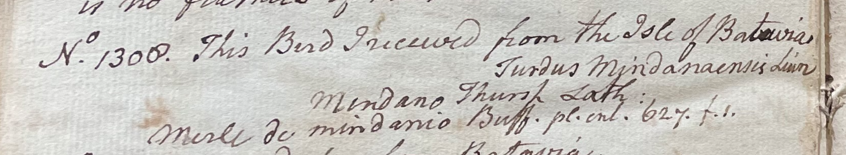 is no
No. 1308. This Bird I received from the Isle of Batavia
Turdus Mindanaensis Linn
Mindano Thursh Lath:
Merle de mindanio Buff. pl. enl. 627. f. 1.
Batavia